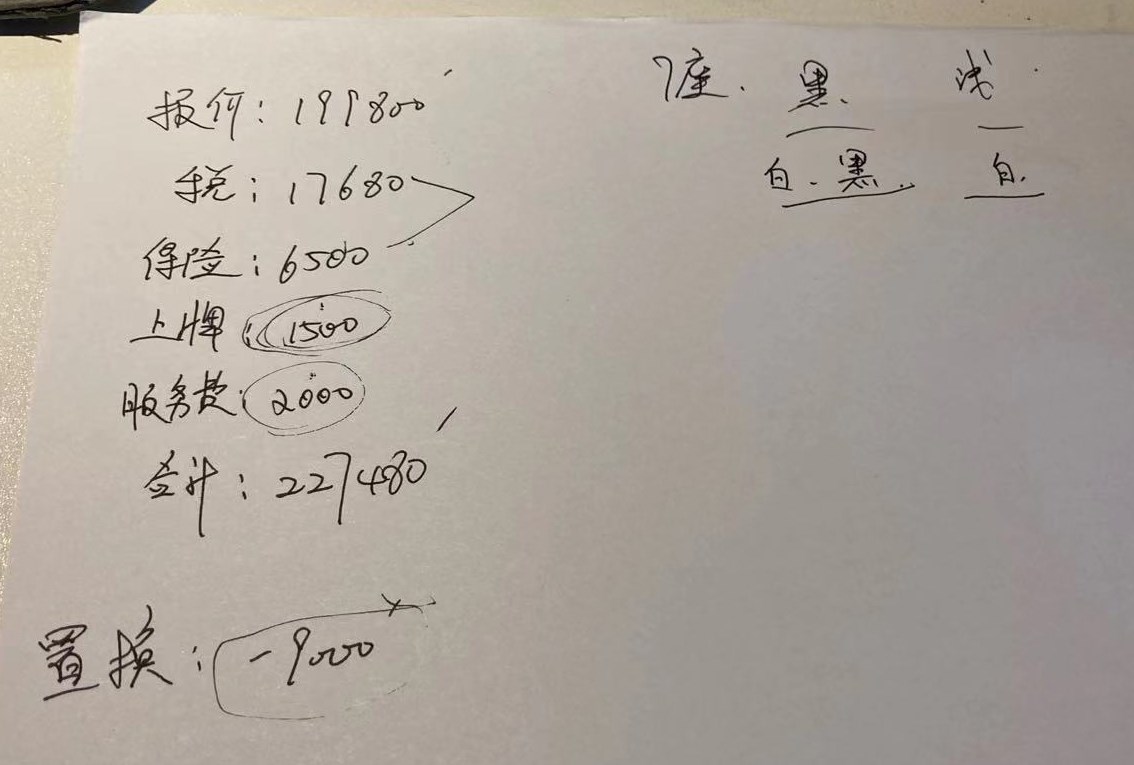 报价：199800
税：17680
保险：6500
上牌：1500
服务费：2000
合计：227480
置换：-9000
7座．黑．浅．
白．黑．白．